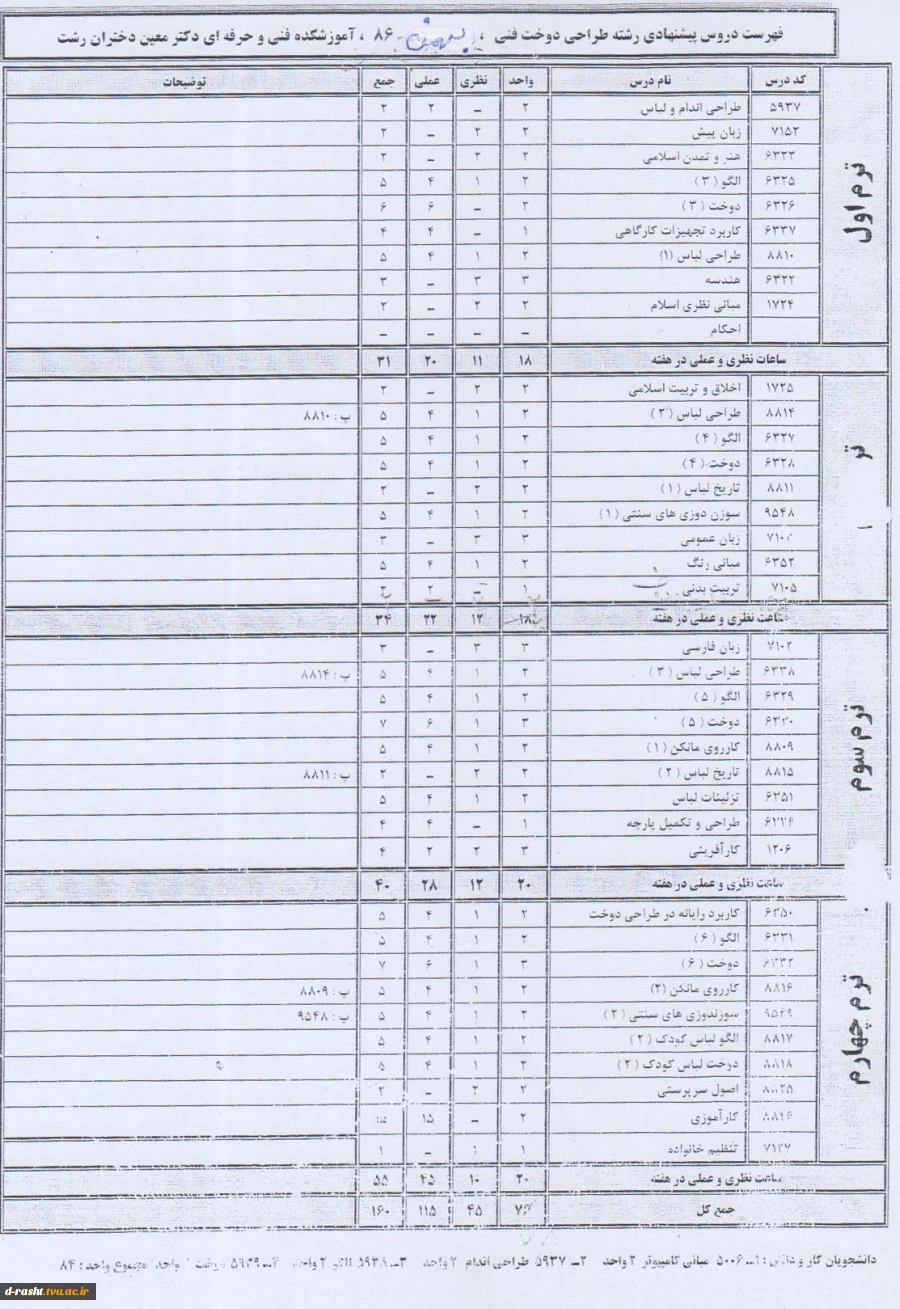 فهرست دروس پیشنهادی رشته طراحی دوخت فنی ، بهمن ۸۶ ، آموزشکده فنی و حرفه ای دکتر معین دختران رشت
کد درس نام درس واحد نظری عملی جمع توضیحات
ترم اول
۵۹۳۷ طراحی اندام و لباس ۲ – ۲ ۲
۷۱۵۲ زبان پیش ۲ ۲ – ۲
۶۳۲۳ هنر و تمدن اسلامی ۲ ۲ – ۲
۶۳۲۵ الگو (۳) ۲ ۱ ۴ ۵
۶۳۲۶ دوخت (۳) ۲ – ۶ ۶
۶۳۳۷ کاربرد تجهیزات کارگاهی ۱ – ۴ ۴
۸۸۱۰ طراحی لباس (۱) ۲ ۱ ۴ ۵
۶۳۲۲ هندسه ۳ ۳ – ۳
۱۷۲۴ مبانی نظری اسلام ۲ ۲ – ۲
احکام – – – –
ساعات نظری و عملی در هفته ۱۸ ۱۱ ۲۰ ۳۱
تر
۱۷۲۵ اخلاق و تربیت اسلامی ۲ ۲ – ۲
۸۸۱۴ طراحی لباس (۲) ۲ ۱ ۴ ۵ پ : ۸۸۱۰
۶۳۲۷ الگو (۴) ۲ ۱ ۴ ۵
۶۳۲۸ دوخت (۴) ۲ ۱ ۴ ۵
۸۸۱۱ تاریخ لباس (۱) ۲ ۲ – ۲
۹۵۴۸ سوزن دوزی های سنتی (۱) ۲ ۱ ۴ ۵
زبان عمومی ۳ ۳ – ۳
۶۳۵۲ مبانی رنگ ۲ ۱ ۴ ۵
۷۱۰۵ تربیت بدنی ۱ – ۲ ۲
ساعت نظری و عملی در هفته ۱۸ ۱۲ ۲۲ ۳۴
ترم سوم
۷۱۰۲ زبان فارسی ۳ ۳ – ۳
۶۳۳۸ طراحی لباس (۳) ۲ ۱ ۴ ۵ پ : ۸۸۱۴
۶۳۲۹ الگو (۵) ۲ ۱ ۴ ۵
۶۳۳۰ دوخت (۵) ۳ ۱ ۶ ۷
۸۸۰۹ کارروی مانکن (۱) ۲ ۱ ۴ ۵
۸۸۱۵ تاریخ لباس (۲) ۲ ۲ – ۲ پ : ۸۸۱۱
۶۳۵۱ تزئینات لباس ۲ ۱ ۴ ۵
طراحی و تکمیل پارچه ۱ – ۴ ۴
۱۲۰۶ کارآفرینی ۳ ۲ ۲ ۴
ساعت نظری و عملی در هفته ۲۰ ۱۲ ۲۸ ۴۰
ترم چهارم
۶۳۵۰ کاربرد رایانه در طراحی دوخت ۲ ۱ ۴ ۵
۶۳۳۱ الگو (۶) ۲ ۱ ۴ ۵
۶۳۳۲ دوخت (۶) ۳ ۱ ۶ ۷
۸۸۱۶ کارروی مانکن (۲) ۲ ۱ ۴ ۵ پ : ۸۸۰۹
۹۵۴۹ سوزندوزی های سنتی (۲) ۲ ۱ ۴ ۵ پ : ۹۵۴۸
۸۸۱۷ الگو لباس کودک (۲) ۲ ۱ ۴ ۵
۸۸۱۸ دوخت لباس کودک (۲) ۲ ۱ ۴ ۵
۸۸۲۵ اصول سرپرستی ۲ ۲ – ۲
کارآموزی ۲ – ۱۵ ۱۵
۷۱۲۷ تنظیم خانواده ۱ ۱ – ۱
ساعت نظری و عملی در هفته ۲۰ ۱۰ ۴۵ ۵۵
جمع کل ۷۶ ۴۵ ۱۱۵ ۱۶۰
دانشجویان کار و دانش : ۱ــ ۵۰۰۶ مبانی کامپیوتر ۲ واحد ۲ــ ۵۹۳۷ طراحی اندام ۲ واحد ۳ــ ۵۹۳۸ الگو ۲ واحد ۴ــ ۵۹۳۹ دوخت واحد مجموع واحد : ۸۴
d-rasht.tvu.ac.ir